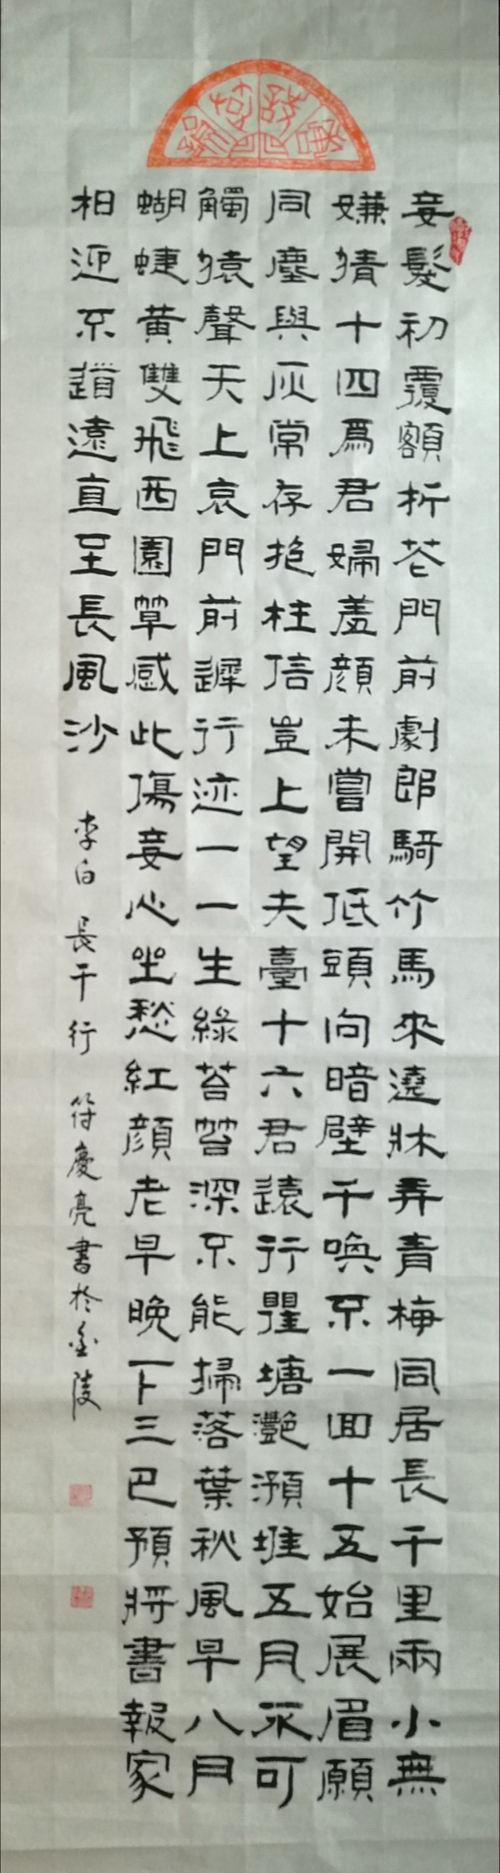 妾髮初覆額折花門前劇郎騎竹馬來遶牀弄青梅同居長千里兩小無
嫌猜十四爲君婦羞顏未嘗開低頭向暗壁千喚不一回十五始展眉願
同塵與灰常存抱柱信豈上望夫臺十六君遠行瞿塘灩澦堆五月不可
觸猿聲天上哀門前遲行迹一一生綠苔苔深不能掃落葉秋風早八月
蝴蝶黃雙飛西園草感此傷妾心坐愁紅顏老早晚下三巴預將書報家
相迎不道遠直至長風沙 李白 長干行 符慶亮書於金陵